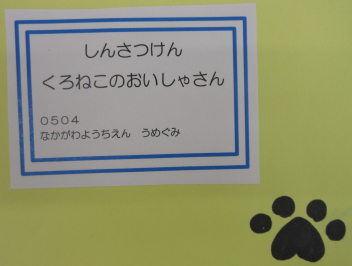 しんさつけん
くろねこのおいしゃさん
０５０４
なかがわようちえん　うめぐみ